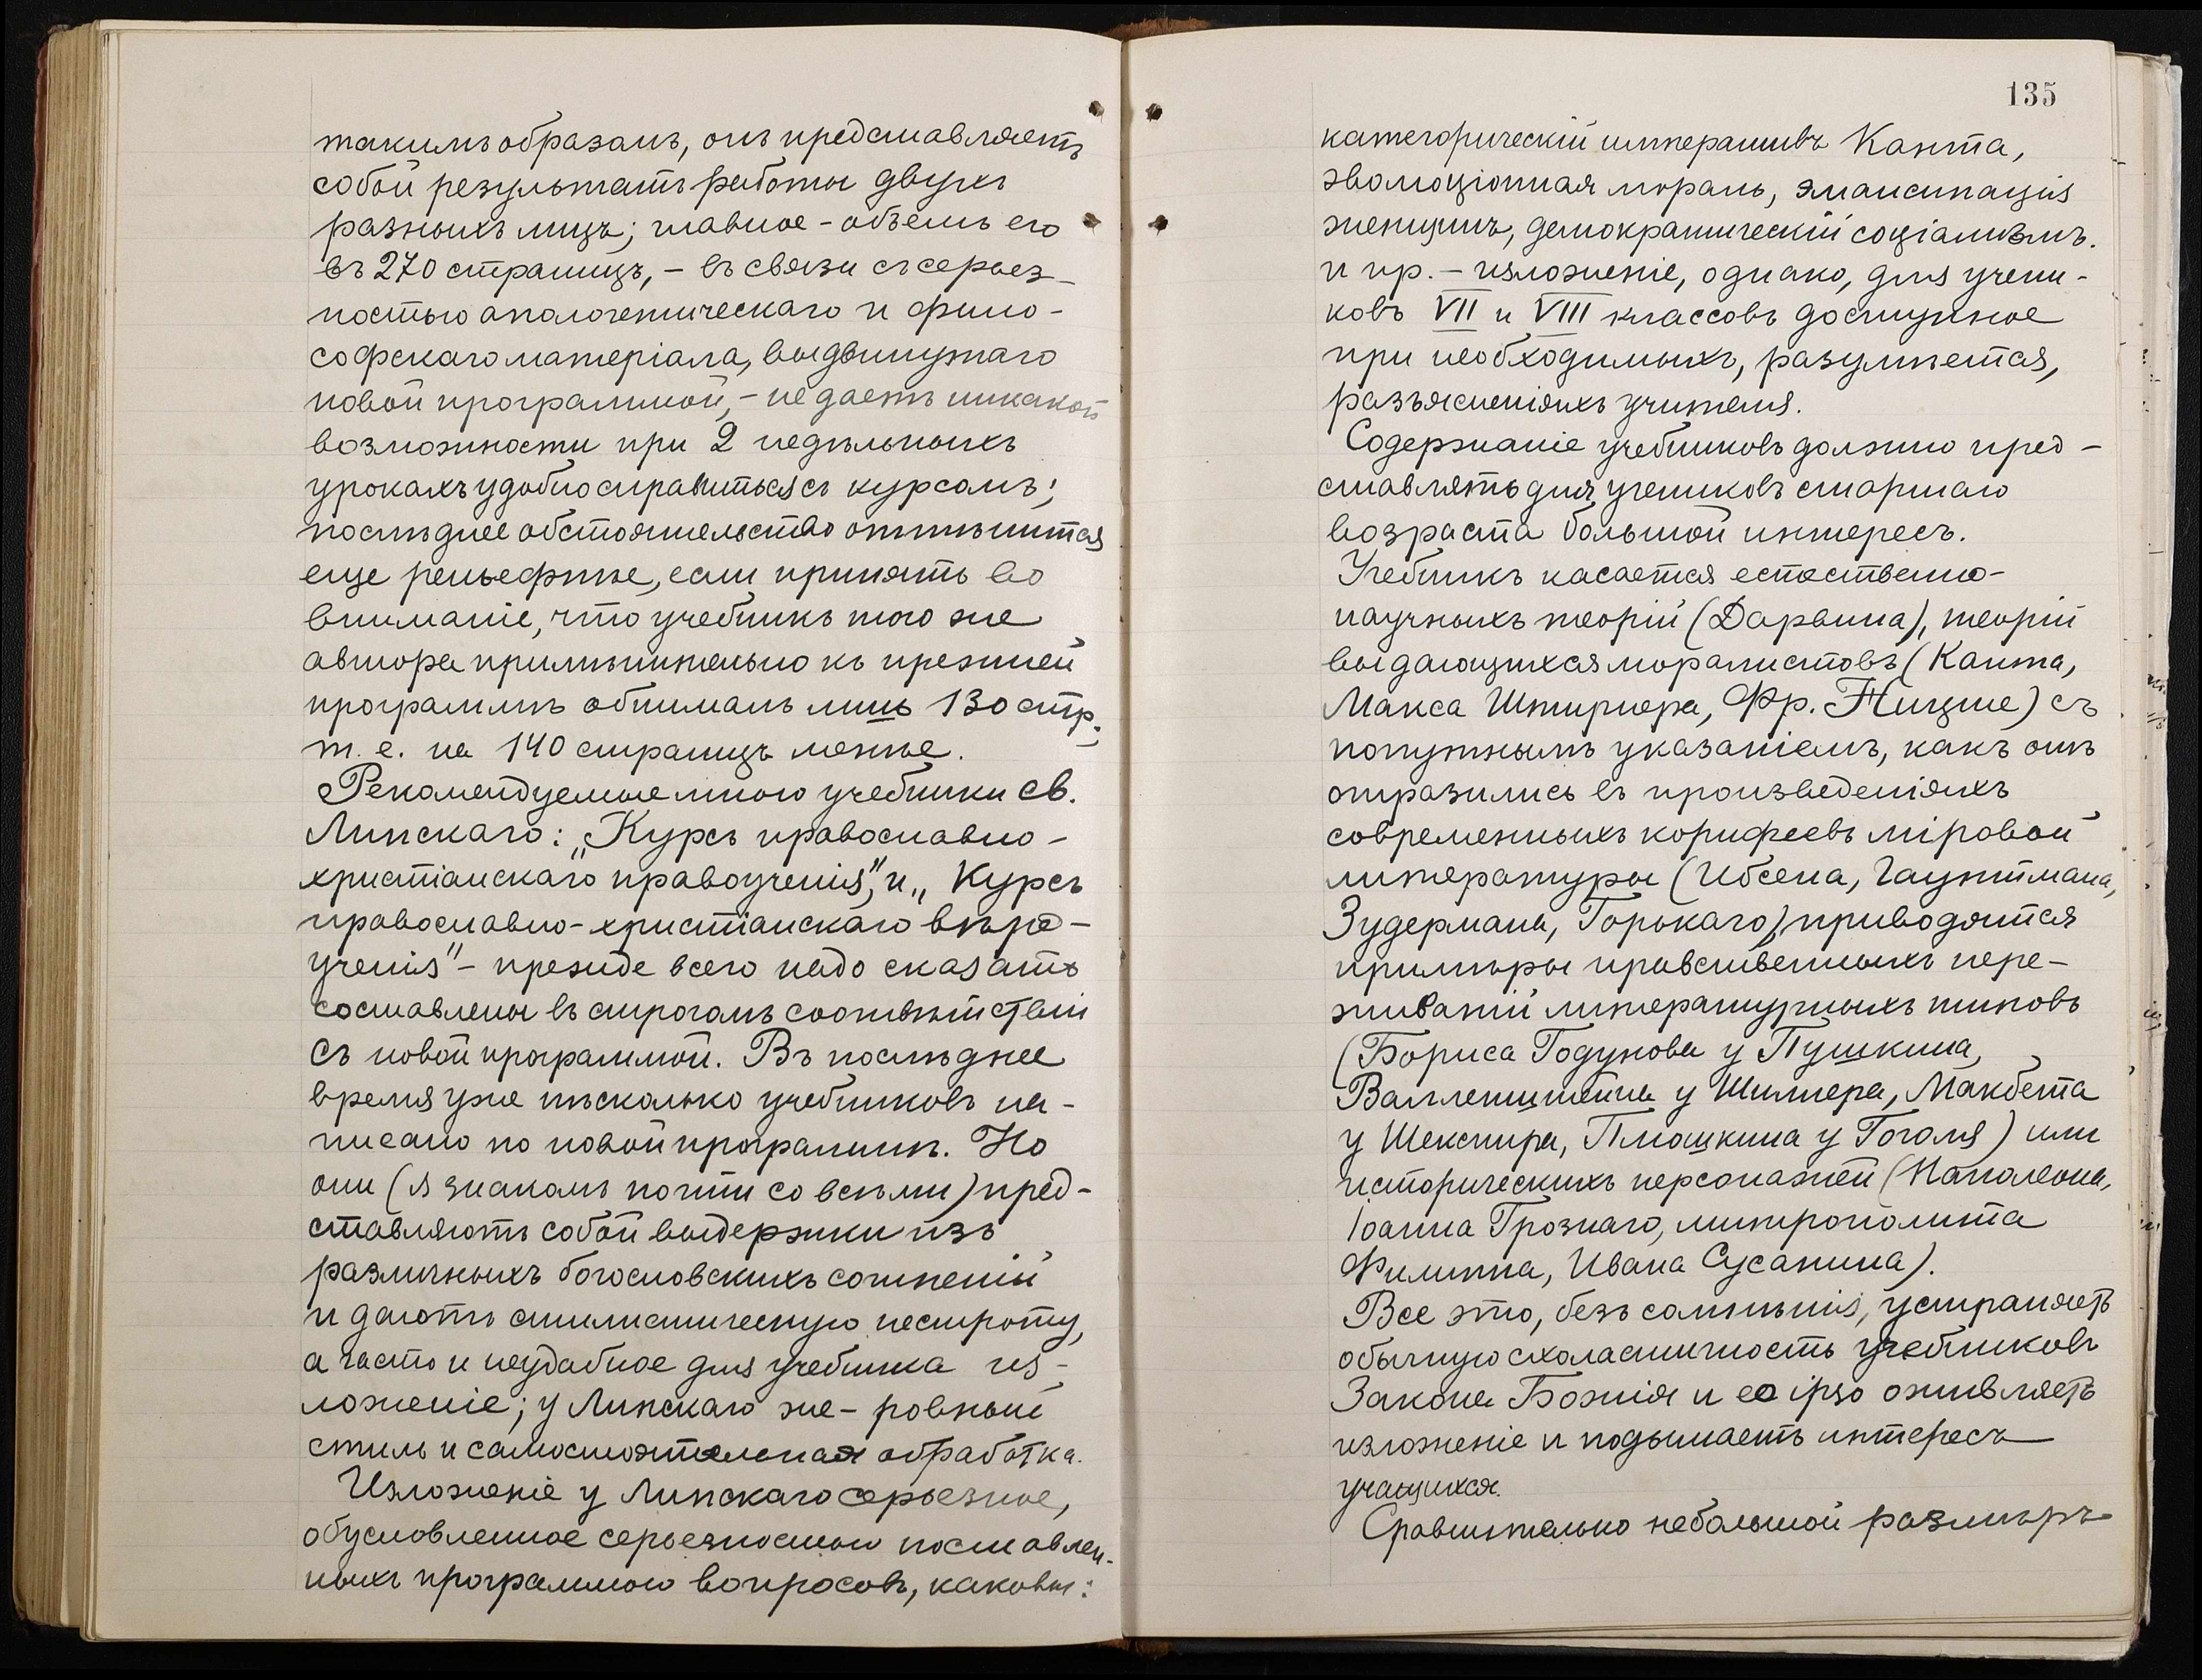 такимъ образомъ, онъ представляетъ
собой результатъ работы двухъ
разныхъ лицъ; главное - объемъ его
въ 270 страницъ, - въ связи съ серьез-
ностью апологетическаго и фило-
софскаго матеріала, выдвинутаго
новой программой, - не даетъ никакой
возможности при 2 недѣльныхъ
урокахъ удобно справиться съ курсомъ;
послѣднее обстоятельство оттѣнится
еще рельефнѣе, если принять во
вниманіе, что учебникъ того же
автора примѣнительно къ прежней
программѣ обнималъ лишь 130 стр.,
т. е. на 140 страницъ менѣе.
Рекомендуемые мною учебники св.
Липскаго: „Курсъ православно-
христіанскаго нравоученія", и „Курсъ
православно-христіанскаго вѣро-
ученія" - прежде всего надо сказать
составлены въ строгомъ соотвѣтствіи
съ новой программой. Въ послѣднее
время уже нѣсколько учебниковъ на-
писано по новой программѣ. Но
они (я знакомъ почти со всѣми) пред-
ставляютъ собой выдержки изъ
различныхъ богословскихъ сочиненій
и даютъ стилистическую пестроту,
а часто и неудобное для учебника из-
ложеніе; у Липскаго же - ровный
стиль и самостоятельная обработка.
Изложеніе у Липскаго серьезное,
обусловленное серьезностью поставлен-
ныхъ программою вопросовъ, каковы:
135
категорическій императивъ Канта,
эволюціонная мораль, эмансипація
женщинъ, демократическій соціализмъ.
и пр. - изложеніе, однако, для учени-
ковъ VII и VIII классовъ доступное
при необходимыхъ, разумѣется,
разъясненіяхъ учителя.
Содержаніе учебниковъ должно пред-
ставлять для учениковъ старшаго
возраста большой интересъ.
Учебникъ касается естественно-
научныхъ теорій (Дарвина), теорій
выдающихся моралистовъ (Канта,
Макса Штирнера, Фр. Ницше) съ
попутнымъ указаніемъ, какъ онѣ
отразились въ произведеніяхъ
современныхъ корифеевъ міровой
литературы (Ибсена, Гауптмана,
Зудермана, Горькаго) приводятся
примѣры нравственныхъ пере-
живаній литературныхъ типовъ
(Бориса Годунова у Пушкина,
Валленштейна у Шиллера, Макбета
у Шекспира, Плюшкина у Гоголя) или
историческихъ персонажей (Наполеона,
Іоанна Грознаго, митрополита
Филиппа, Ивана Сусанина).
Все это, безъ сомнѣнія, устраняетъ
обычную схоластичность учебниковъ
Закона Божія и eo ipso оживляетъ
изложеніе и подымаетъ интересъ
учащихся.
Сравнительно небольшой размѣръ